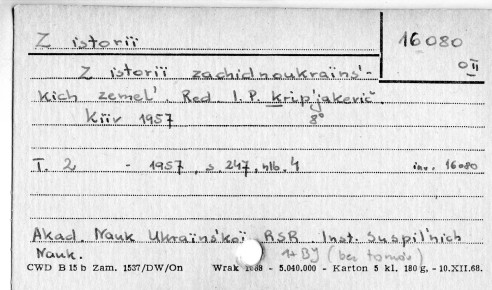 Z istorii
16080
OII
Z istorii zachidnoukraïns'-
kich zemel'. Red. I.P. Krip'jakevič.
Kiïv 1957 8°
T. 2 - 1957, s. 247, nlb. 4 inw. 16080
Akad. Nauk Ukraïns'koï RSR Inst. Suspil'nich
Nauk. 1+BJ (bez tomów)
CWD B 15 b Zam. 1537/DW/On Wrak 1088 - 5.040.000 - Karton 5 kl. 180 g. - 10.XII.68.